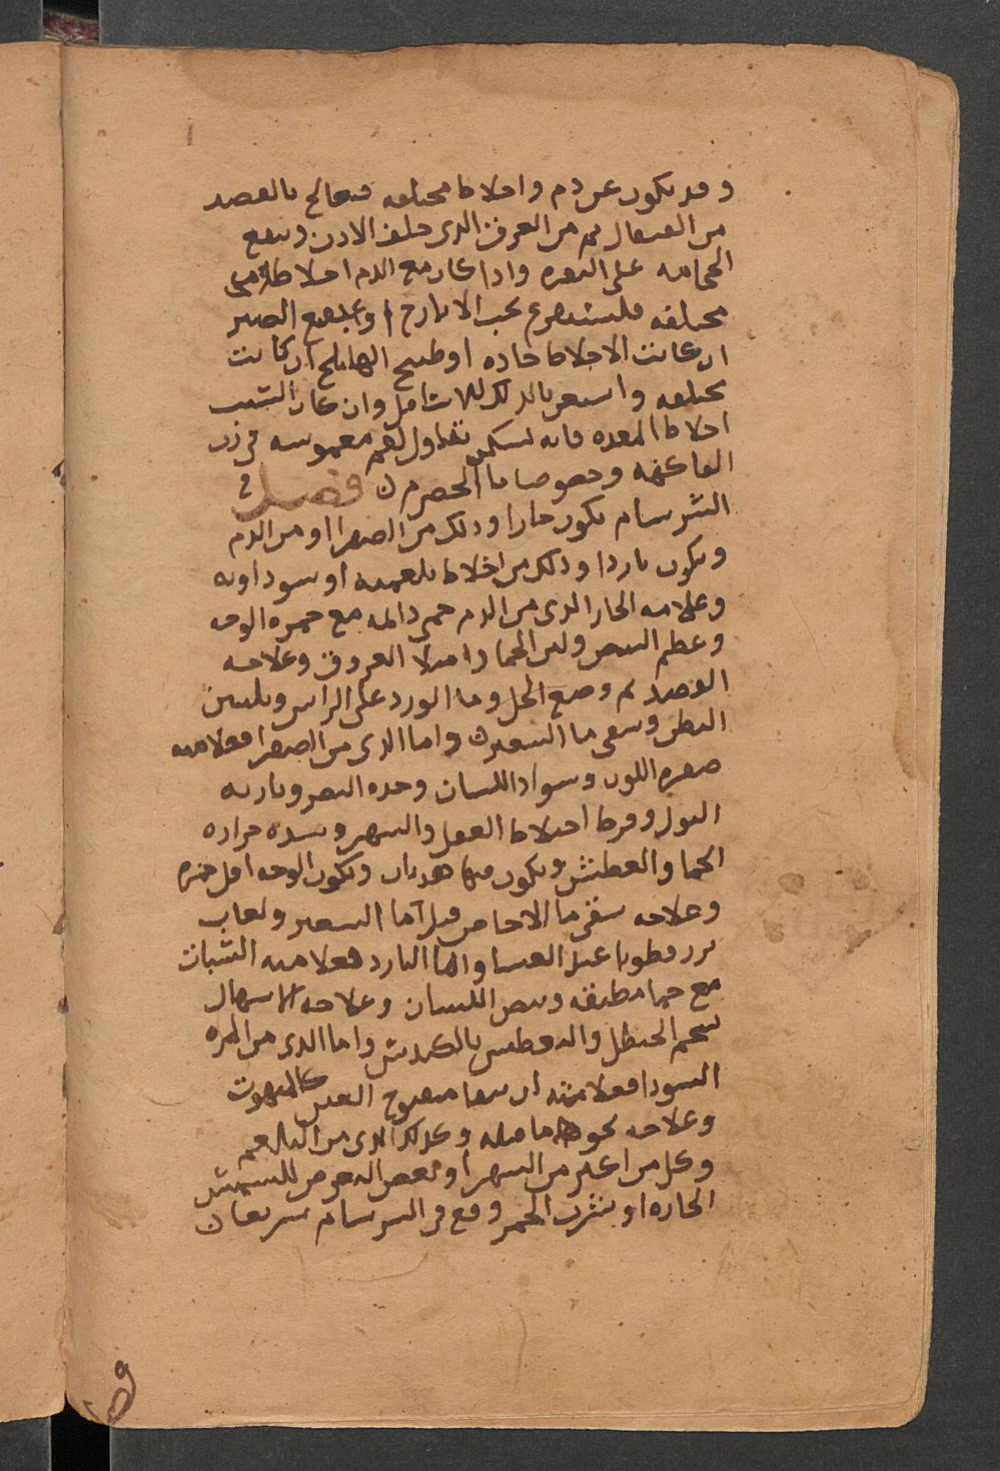 وقد يكون عن دم واخلاط مختلفه فتعالج بالفصد
من القيفال ثم من العرق الذى خلف الاذن وينفع
الحجامه على النقره واذا كان مع الدم اخلاط اخرى
مختلفه فليستفرغ بحب الايارج او بنقيع الصبر
ان كانت الاخلاط حاده او طبيخ الهليلج ان كانت
مختلفه وان كان السبب
اخلاط المعده فانه يسكن بتناول لقم مغموسه فى رب
الفاكهه وخصوصا ماء الحصرم فصل فى
السرسام يكون حارا وذلك من الصفرا او من الدم
ويكون باردا وذلك من اخلاط بلغميه او سوداويه
وعلامه الحار الذى من الدم حمى دائمه مع حمره الوجه
وعظم النبض ولين الحما وامتلا العروق وعلاجه
الفصد ثم وضع الخل وما الورد على الراس وتليين
البطن وسقى ما الشعير واما الذى من الصفرا فعلامته
صفره اللون وسواد اللسان وحده النبض وناريه
البول وفرط اختلاط العقل والسهر وشده حراره
الحما والعطش ويكون فيها هذيان ويكون الوجه اقل حمره
وعلاجه سقى ما الاجاص قبل ما الشعير ولعاب
بزر قطونا عند العشا واما البارد فعلامته السبات
مع حما مطبقه وبيض اللسان وعلاجه الاسهال
بشحم الحنظل والتعطيس بالكندش واما الذى من المره
السودا فعلامته ان يبقا مفتوح العين كالمبهوت
وعلاجه نحو ما قبله وكذلك الذى من البلغم
وكل من اكثر من السهر او بعض التعرض للشمس
الحاره او شرب الخمر وقع فى السرسام سريعا